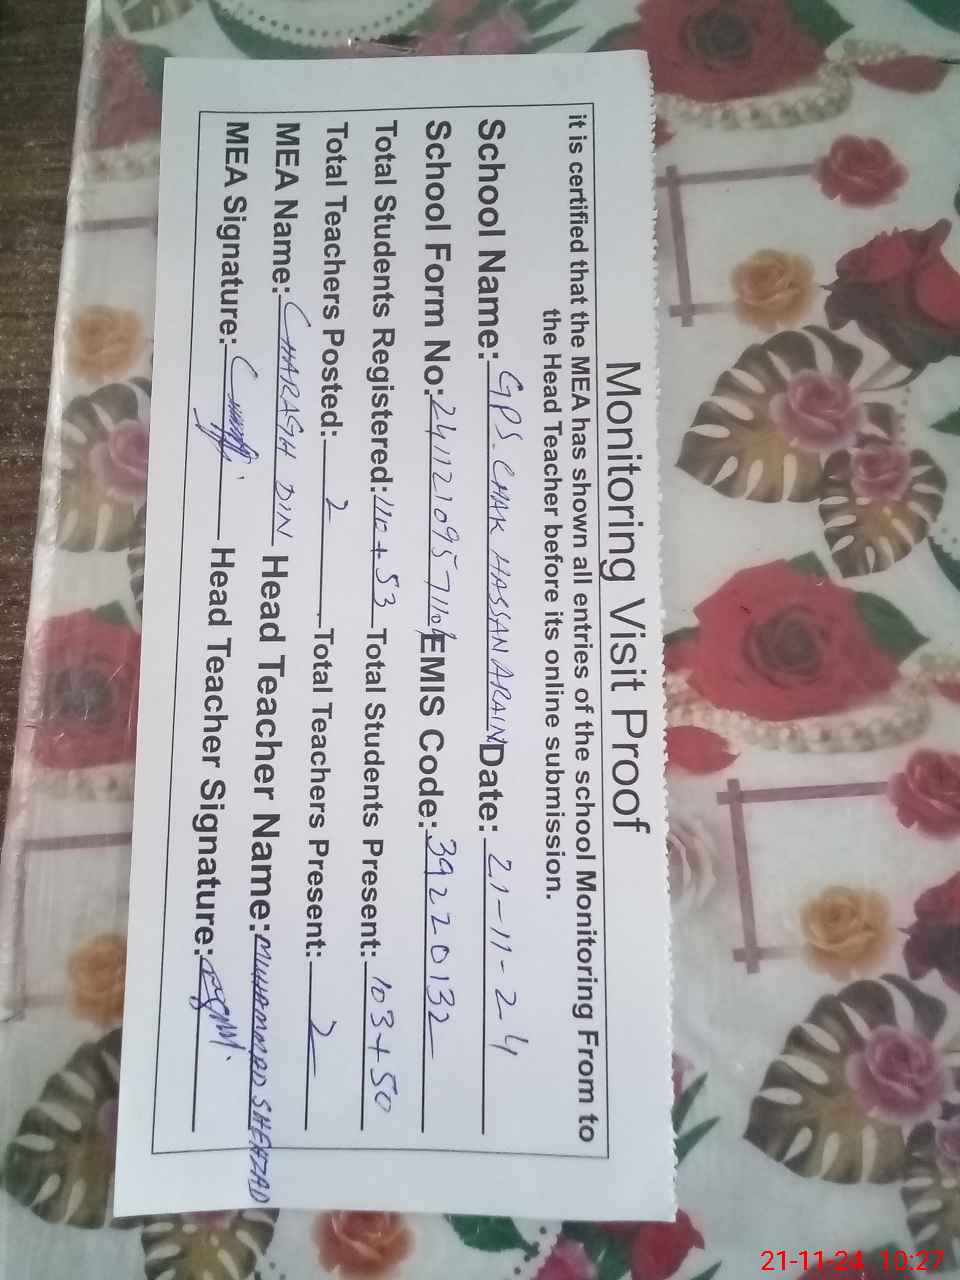 Monitoring Visit Proof
it is certified that the MEA has shown all entries of the school Monitoring From to
the Head Teacher before its online submission.
School Name: GPS. CHAK HASSAN ARAIN Date: 21-11-24
School Form No: EMIS Code: 39220132
Total Students Registered: 110+53 Total Students Present: 103+50
Total Teachers Posted: 2 Total Teachers Present: 2
MEA Name: CHARAGH DIN Head Teacher Name: MUHAMMAD SHEHZAD
MEA Signature: Head Teacher Signature:
21-11-24 10:27